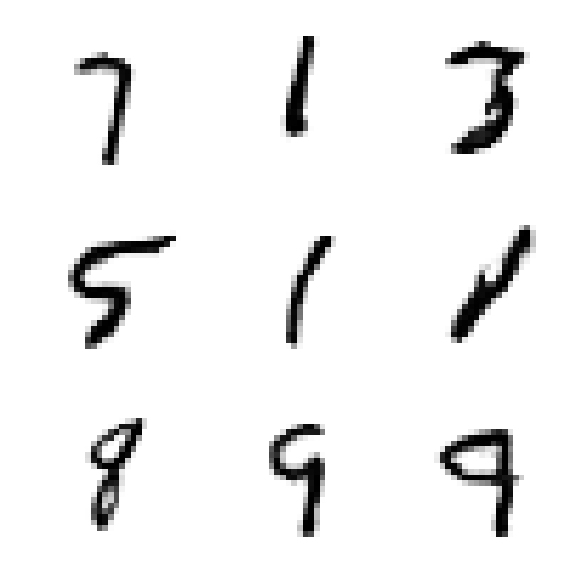 7 1 3
5 1 1
8 9 9